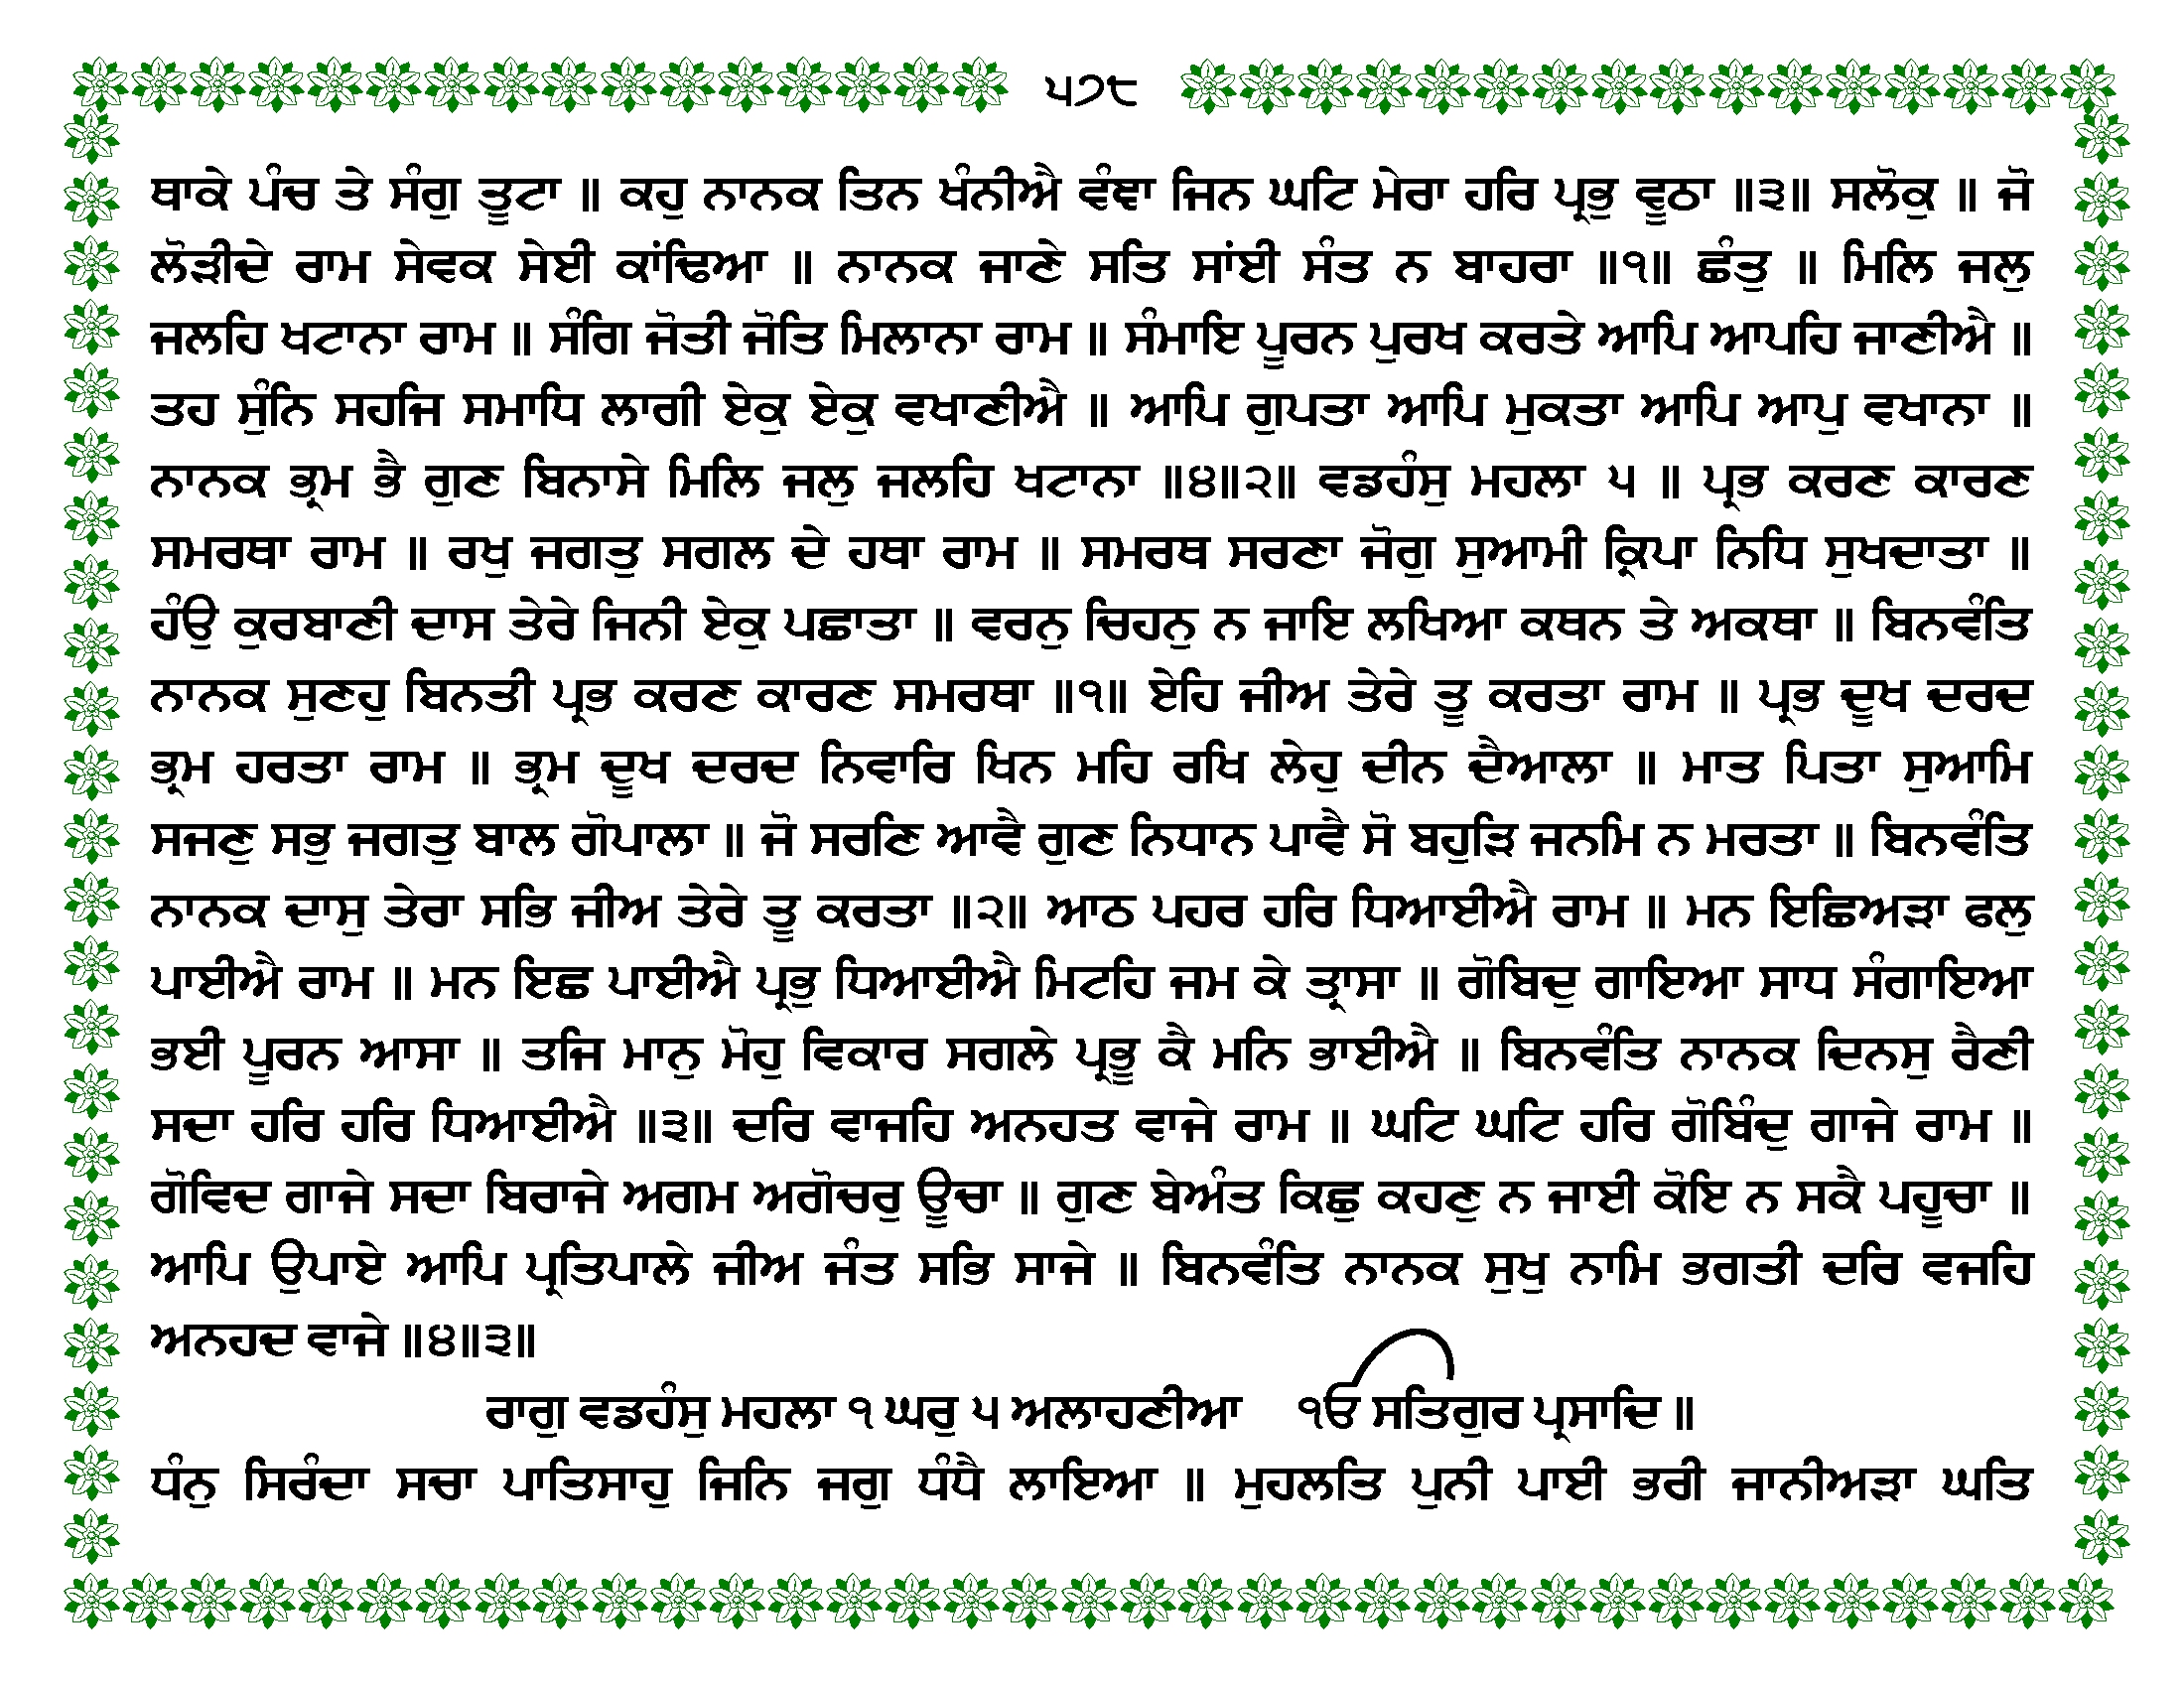 ੫੭੮
ਥਾਕੇ ਪੰਚ ਤੇ ਸੰਗੁ ਤੂਟਾ ॥ ਕਹੁ ਨਾਨਕ ਤਿਨ ਖੰਨੀਐ ਵੰਞਾ ਜਿਨ ਘਟਿ ਮੇਰਾ ਹਰਿ ਪ੍ਰਭੁ ਵੂਠਾ ॥੩॥ ਸਲੋਕੁ ॥ ਜੋ
ਲੋੜੀਦੇ ਰਾਮ ਸੇਵਕ ਸੇਈ ਕਾਂਢਿਆ ॥ ਨਾਨਕ ਜਾਣੇ ਸਤਿ ਸਾਂਈ ਸੰਤ ਨ ਬਾਹਰਾ ॥੧॥ ਛੰਤੁ ॥ ਮਿਲਿ ਜਲੁ
ਜਲਹਿ ਖਟਾਨਾ ਰਾਮ ॥ ਸੰਗਿ ਜੋਤੀ ਜੋਤਿ ਮਿਲਾਨਾ ਰਾਮ ॥ ਸੰਮਾਇ ਪੂਰਨ ਪੁਰਖ ਕਰਤੇ ਆਪਿ ਆਪਹਿ ਜਾਣੀਐ ॥
ਤਹ ਸੁੰਨਿ ਸਹਜਿ ਸਮਾਧਿ ਲਾਗੀ ਏਕੁ ਏਕੁ ਵਖਾਣੀਐ ॥ ਆਪਿ ਗੁਪਤਾ ਆਪਿ ਮੁਕਤਾ ਆਪਿ ਆਪੁ ਵਖਾਨਾ ॥
ਨਾਨਕ ਭ੍ਰਮ ਭੈ ਗੁਣ ਬਿਨਾਸੇ ਮਿਲਿ ਜਲੁ ਜਲਹਿ ਖਟਾਨਾ ॥੪॥੨॥ ਵਡਹੰਸੁ ਮਹਲਾ ੫ ॥ ਪ੍ਰਭ ਕਰਣ ਕਾਰਣ
ਸਮਰਥਾ ਰਾਮ ॥ ਰਖੁ ਜਗਤੁ ਸਗਲ ਦੇ ਹਥਾ ਰਾਮ ॥ ਸਮਰਥ ਸਰਣਾ ਜੋਗੁ ਸੁਆਮੀ ਕ੍ਰਿਪਾ ਨਿਧਿ ਸੁਖਦਾਤਾ ॥
ਹੰਉ ਕੁਰਬਾਣੀ ਦਾਸ ਤੇਰੇ ਜਿਨੀ ਏਕੁ ਪਛਾਤਾ ॥ ਵਰਨੁ ਚਿਹਨੁ ਨ ਜਾਇ ਲਖਿਆ ਕਥਨ ਤੇ ਅਕਥਾ ॥ ਬਿਨਵੰਤਿ
ਨਾਨਕ ਸੁਣਹੁ ਬਿਨਤੀ ਪ੍ਰਭ ਕਰਣ ਕਾਰਣ ਸਮਰਥਾ ॥੧॥ ਏਹਿ ਜੀਅ ਤੇਰੇ ਤੂ ਕਰਤਾ ਰਾਮ ॥ ਪ੍ਰਭ ਦੂਖ ਦਰਦ
ਭ੍ਰਮ ਹਰਤਾ ਰਾਮ ॥ ਭ੍ਰਮ ਦੂਖ ਦਰਦ ਨਿਵਾਰਿ ਖਿਨ ਮਹਿ ਰਖਿ ਲੇਹੁ ਦੀਨ ਦੈਆਲਾ ॥ ਮਾਤ ਪਿਤਾ ਸੁਆਮਿ
ਸਜਣੁ ਸਭੁ ਜਗਤੁ ਬਾਲ ਗੋਪਾਲਾ ॥ ਜੋ ਸਰਣਿ ਆਵੈ ਗੁਣ ਨਿਧਾਨ ਪਾਵੈ ਸੋ ਬਹੁੜਿ ਜਨਮਿ ਨ ਮਰਤਾ ॥ ਬਿਨਵੰਤਿ
ਨਾਨਕ ਦਾਸੁ ਤੇਰਾ ਸਭਿ ਜੀਅ ਤੇਰੇ ਤੂ ਕਰਤਾ ॥੨॥ ਆਠ ਪਹਰ ਹਰਿ ਧਿਆਈਐ ਰਾਮ ॥ ਮਨ ਇਛਿਅੜਾ ਫਲੁ
ਪਾਈਐ ਰਾਮ ॥ ਮਨ ਇਛ ਪਾਈਐ ਪ੍ਰਭੁ ਧਿਆਈਐ ਮਿਟਹਿ ਜਮ ਕੇ ਤ੍ਰਾਸਾ ॥ ਗੋਬਿਦੁ ਗਾਇਆ ਸਾਧ ਸੰਗਾਇਆ
ਭਈ ਪੂਰਨ ਆਸਾ ॥ ਤਜਿ ਮਾਨੁ ਮੋਹੁ ਵਿਕਾਰ ਸਗਲੇ ਪ੍ਰਭੂ ਕੈ ਮਨਿ ਭਾਈਐ ॥ ਬਿਨਵੰਤਿ ਨਾਨਕ ਦਿਨਸੁ ਰੈਣੀ
ਸਦਾ ਹਰਿ ਹਰਿ ਧਿਆਈਐ ॥੩॥ ਦਰਿ ਵਾਜਹਿ ਅਨਹਤ ਵਾਜੇ ਰਾਮ ॥ ਘਟਿ ਘਟਿ ਹਰਿ ਗੋਬਿੰਦੁ ਗਾਜੇ ਰਾਮ ॥
ਗੋਵਿਦ ਗਾਜੇ ਸਦਾ ਬਿਰਾਜੇ ਅਗਮ ਅਗੋਚਰੁ ਊਚਾ ॥ ਗੁਣ ਬੇਅੰਤ ਕਿਛੁ ਕਹਣੁ ਨ ਜਾਈ ਕੋਇ ਨ ਸਕੈ ਪਹੂਚਾ ॥
ਆਪਿ ਉਪਾਏ ਆਪਿ ਪ੍ਰਤਿਪਾਲੇ ਜੀਅ ਜੰਤ ਸਭਿ ਸਾਜੇ ॥ ਬਿਨਵੰਤਿ ਨਾਨਕ ਸੁਖੁ ਨਾਮਿ ਭਗਤੀ ਦਰਿ ਵਜਹਿ
ਅਨਹਦ ਵਾਜੇ ॥੪॥੩॥
ਰਾਗੁ ਵਡਹੰਸੁ ਮਹਲਾ ੧ ਘਰੁ ੫ ਅਲਾਹਣੀਆ ੴ ਸਤਿਗੁਰ ਪ੍ਰਸਾਦਿ ॥
ਧੰਨੁ ਸਿਰੰਦਾ ਸਚਾ ਪਾਤਿਸਾਹੁ ਜਿਨਿ ਜਗੁ ਧੰਧੈ ਲਾਇਆ ॥ ਮੁਹਲਤਿ ਪੁਨੀ ਪਾਈ ਭਰੀ ਜਾਨੀਅੜਾ ਘਤਿ